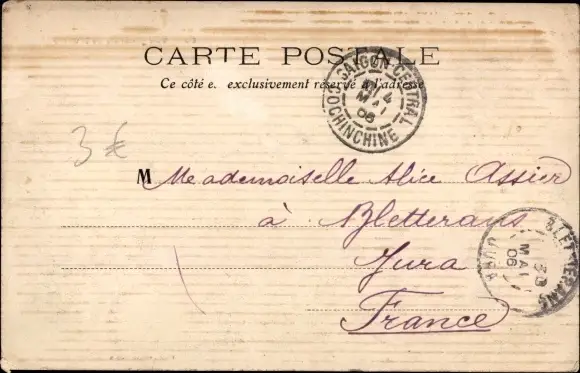 CARTE POSTALE
Ce côté e. exclusivement réservé à l'adresse
SAIGON-CENTRAL
4
MAI
06
COCHINCHINE
3€
M Mademoiselle Alice Assier
à Bletterans
Jura
France
BLETTERANS
30
MAI
06
JURA